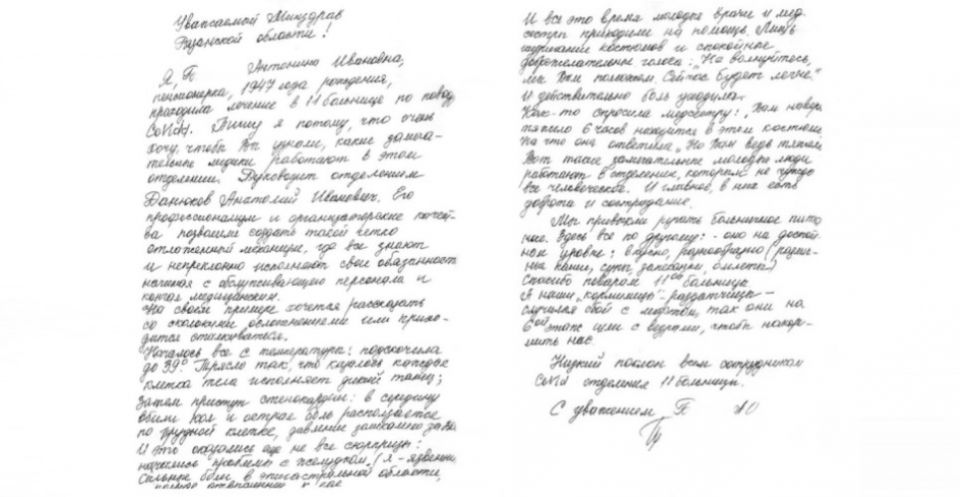 Уважаемый Минздрав
Рязанской области!
Я, П Антонина Ивановна,
пенсионерка, 1947 года рождения,
проходила лечение в 11 больнице по поводу
CoVid. Пишу я потому, что очень
хочу, чтобы Вы узнали, какие замеча-
тельные медики работают в этом
отделении. Руководит отделением
Данюков Анатолий Иванович. Его
профессионализм и организаторские качест-
ва позволили создать такой четко
отлаженный механизм, где все знают
и непреклонно исполняют свои обязанности
начиная с обслуживающего персонала и
кончая медицинским.
На своем примере хочется рассказать
со сколькими осложнениями им прихо-
дится сталкиваться.
Началось все с температуры: подскочила
до 39°. Трясло так, что казалось каждая
клетка тела исполняет дикий танец;
Затем приступ стенокардии: в середину
вбили кол и острая боль расползается
по грудной клетке, давление
И это оказались еще не все сюрпризы:
начались проблемы с желудком. (я - язвенник
Сильные боли в эпигастральной области,
И все это время молодые врачи и мед.
сестры приходили на помощь. Лишь
костюмов и спокойные
доброжелательные голоса: "Не волнуйтесь,
мы Вам поможем. Сейчас будет легче."
И действительно боль уходила.
Как-то спросила медсестру: "Вам наверн
тяжело 6 часов находится в этом костюме
На что она ответила "Но Вам ведь тяжелее
Вот такие замечательные молодые люди
работают в отделении, которым не чуждо
все человеческое. И главное, в них есть
доброта и сострадание.
Мы привыкли ругать больничное пита
ние. Здесь все по другому: - оно на достой-
ном уровне: вкусно, разнообразно (различ-
ные каши, супы, запеканки, омлеты)
Спасибо поварам 11ой больницы
А наши "кормилицы" - раздатчицы -
случился сбой с лифтом, так они на
6ой этаж шли с ведрами, чтобы накор-
мить нас.
Низкий поклон всем сотрудникам
CoVid отделения 11 больницы.
С уважением П